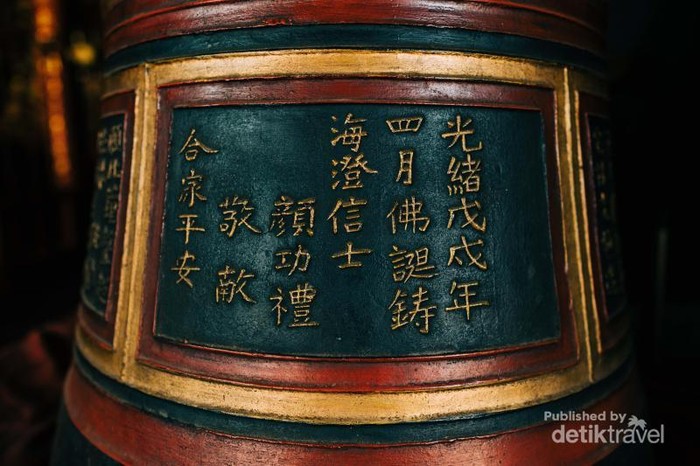 光緒戊戌年
四月佛誕鑄
海澄信士
顏功禮
敬
合家平安
Published by
detiktravel